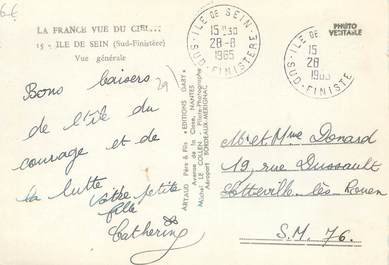 LA FRANCE VUE DU CIEL...
15 - ILE DE SEIN (Sud-Finistère)
Vue générale
Bons baisers
de l'île du
courage et de
la lutte
votre petite
fille
Catherine
ARTAUD Père & Fils "EDITIONS GABY"
Avenue de la Close, NANTES
Michel LE COLLEN - Pilote-Photographe
Aéroport BORDEAUX-MERIGNAC
ILE DE SEIN
15 H 30
28-8
1965
SUD-FINISTERE
ILE DE
15
28
1965
SUD-FINISTE
PHOTO
VERITABLE
Mr et Mme Donard
19, rue Dussault
Sotteville-lès-Rouen
S.M. 76.